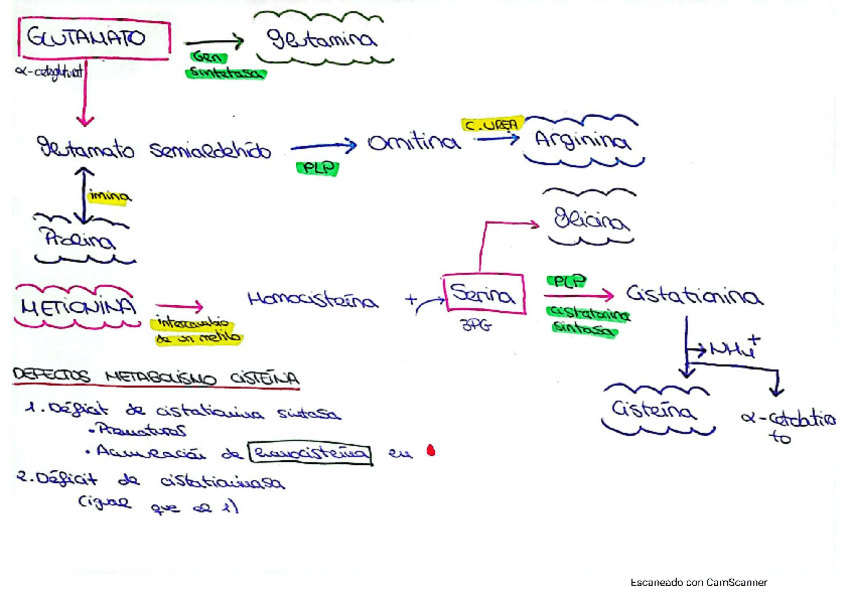 GLUTAMATO
glutamina
Gln sintetasa
α-cetoglutarat
glutamato semialdehído
PLP
Ornitina
C. UREA
Arginina
imina
Prolina
glicina
METIONINA
intercambio de un metilo
Homocisteína
+
Serina
3PG
PLP
cistationina sintasa
Cistationina
NH4+
Cisteína
α-cetobutira
to
DEFECTOS METABOLISMO CISTEÍNA
1. Déficit de cistationina sintasa
• Prematuros
• Acumulación de homocisteína en
2. Déficit de cistationasa
(igual que el 1)
Escaneado con CamScanner